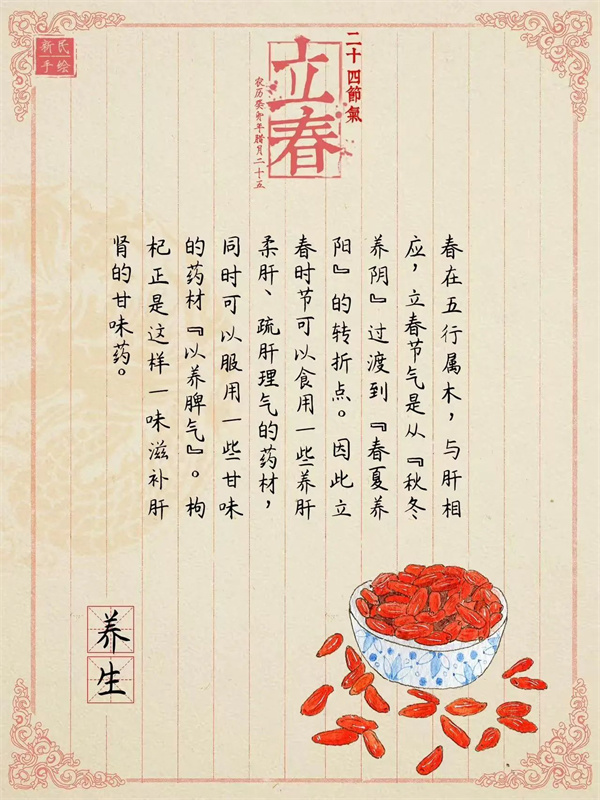 新民
手绘
二十四節氣
立春
农历癸卯年腊月二十五
春在五行属木，与肝相
应，立春节气是从『秋冬
养阴』过渡到『春夏养
阳』的转折点。因此立
春时节可以食用一些养肝
柔肝、疏肝理气的药材，
同时可以服用一些甘味
的药材『以养脾气』。枸
杞正是这样一味滋补肝
肾的甘味药。
养生